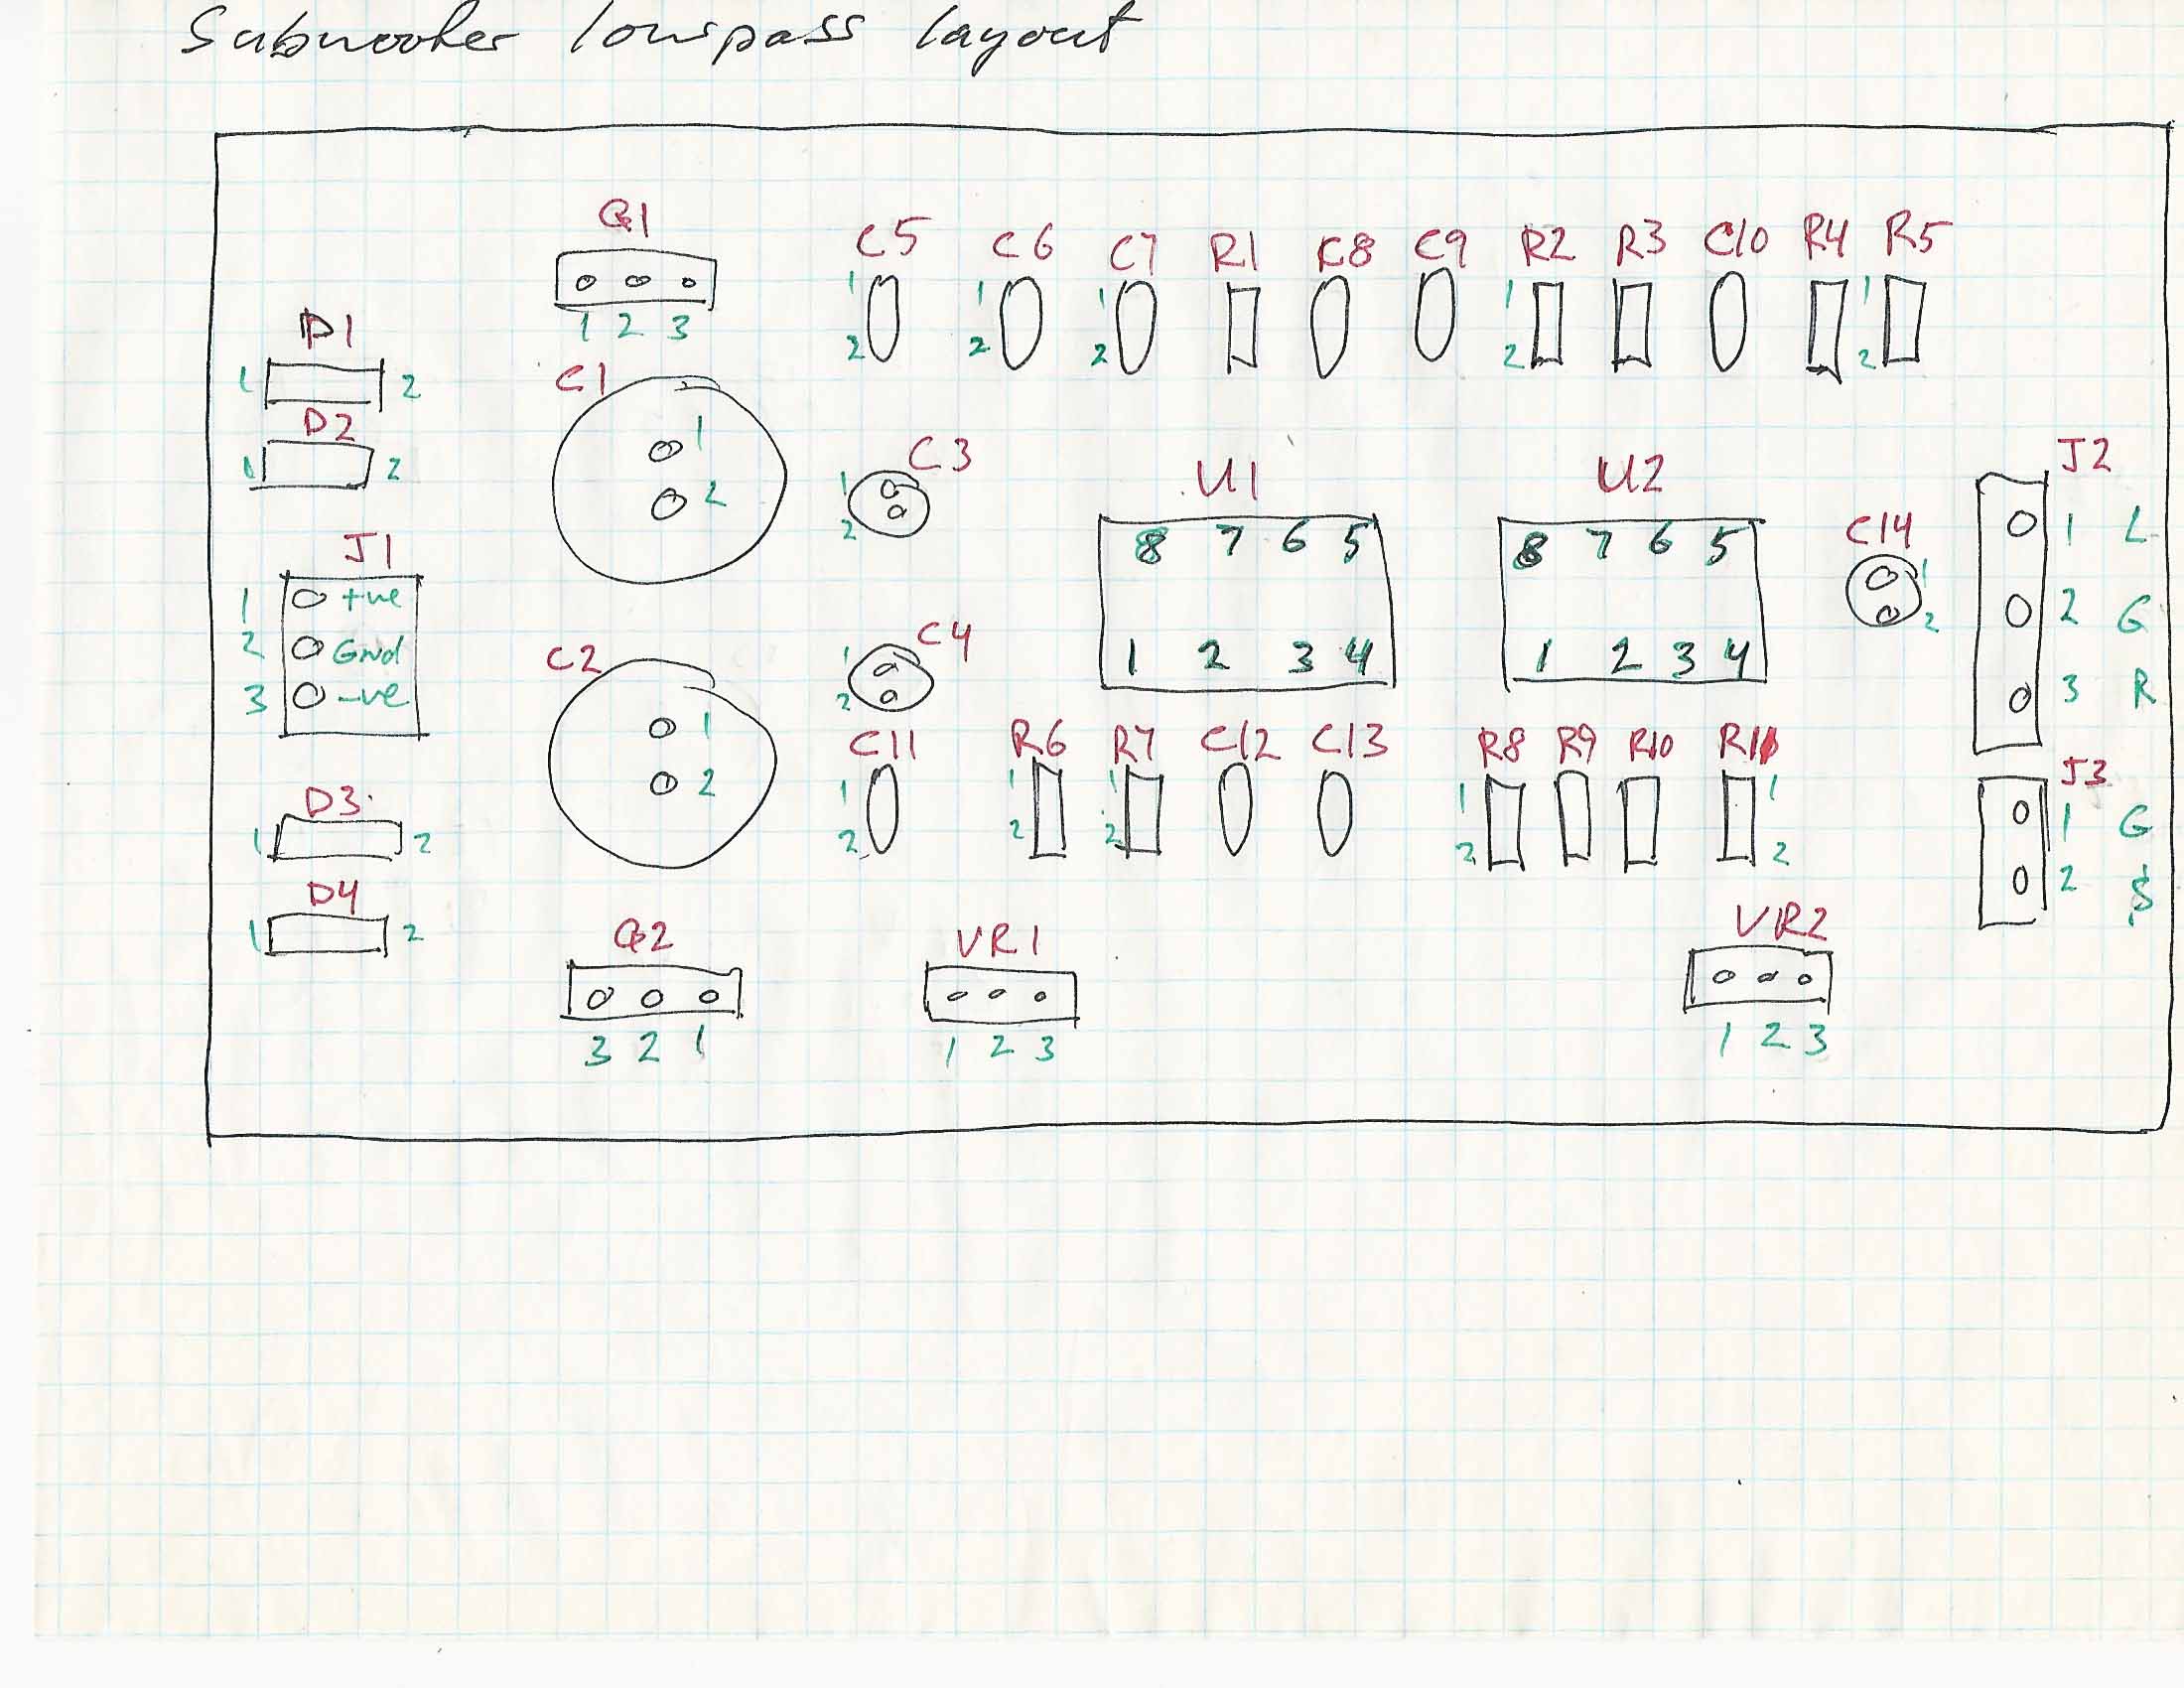 Subwoofer lowpass layout
Q1
1 2 3
C5 1 2
C6 1 2
C7 1 2
R1
C8
C9
R2 1 2
R3
C10
R4
R5 1 2
D1
1 2
D2
1 2
C1
1
2
C3
1
2
U1
8 7 6 5
1 2 3 4
U2
8 7 6 5
1 2 3 4
C14
1
2
J2
1 L
2 G
3 R
J1
1 +ve
2 Gnd
3 -ve
C2
1
2
C4
1
2
C11 1 2
R6 1 2
R7 1 2
C12
C13
R8 1 2
R9
R10
R11 1 2
J3
1 G
2 S
D3
1 2
D4
1 2
Q2
3 2 1
VR1
1 2 3
VR2
1 2 3